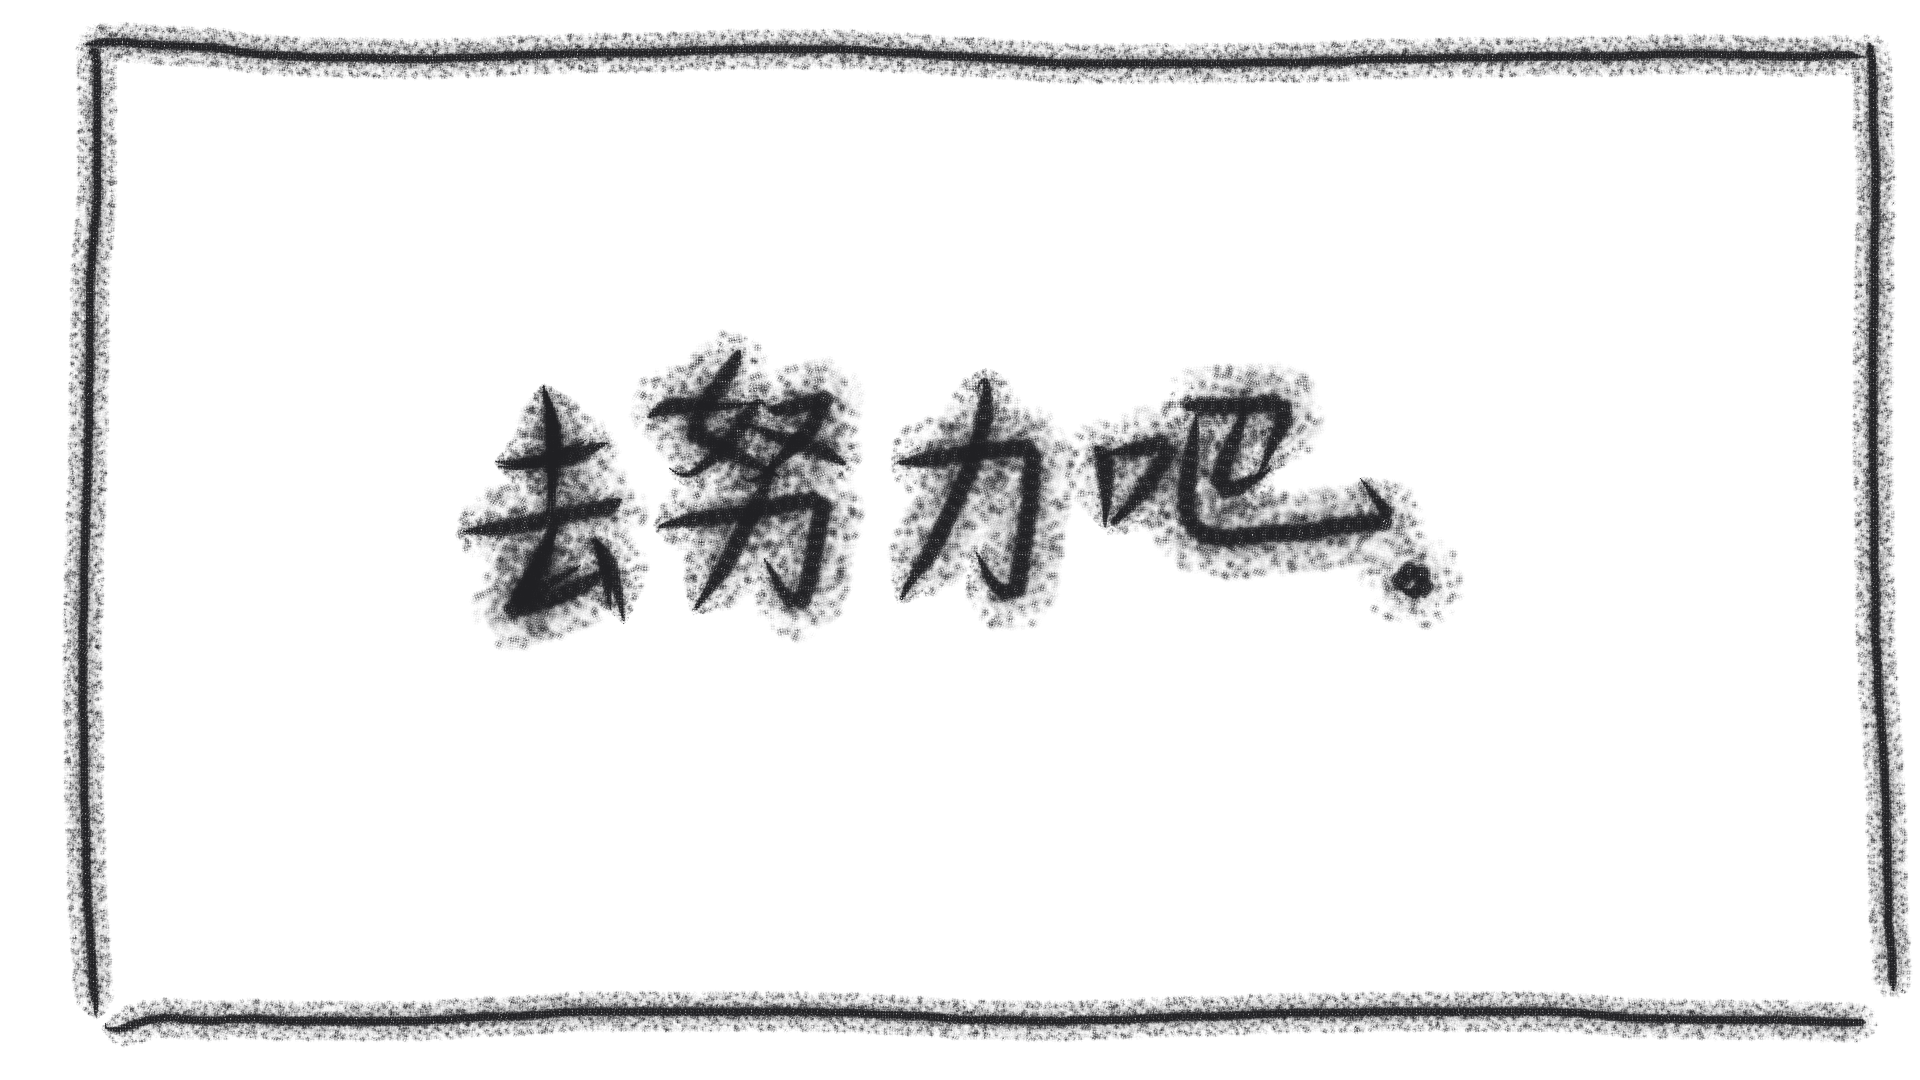 去努力吧。